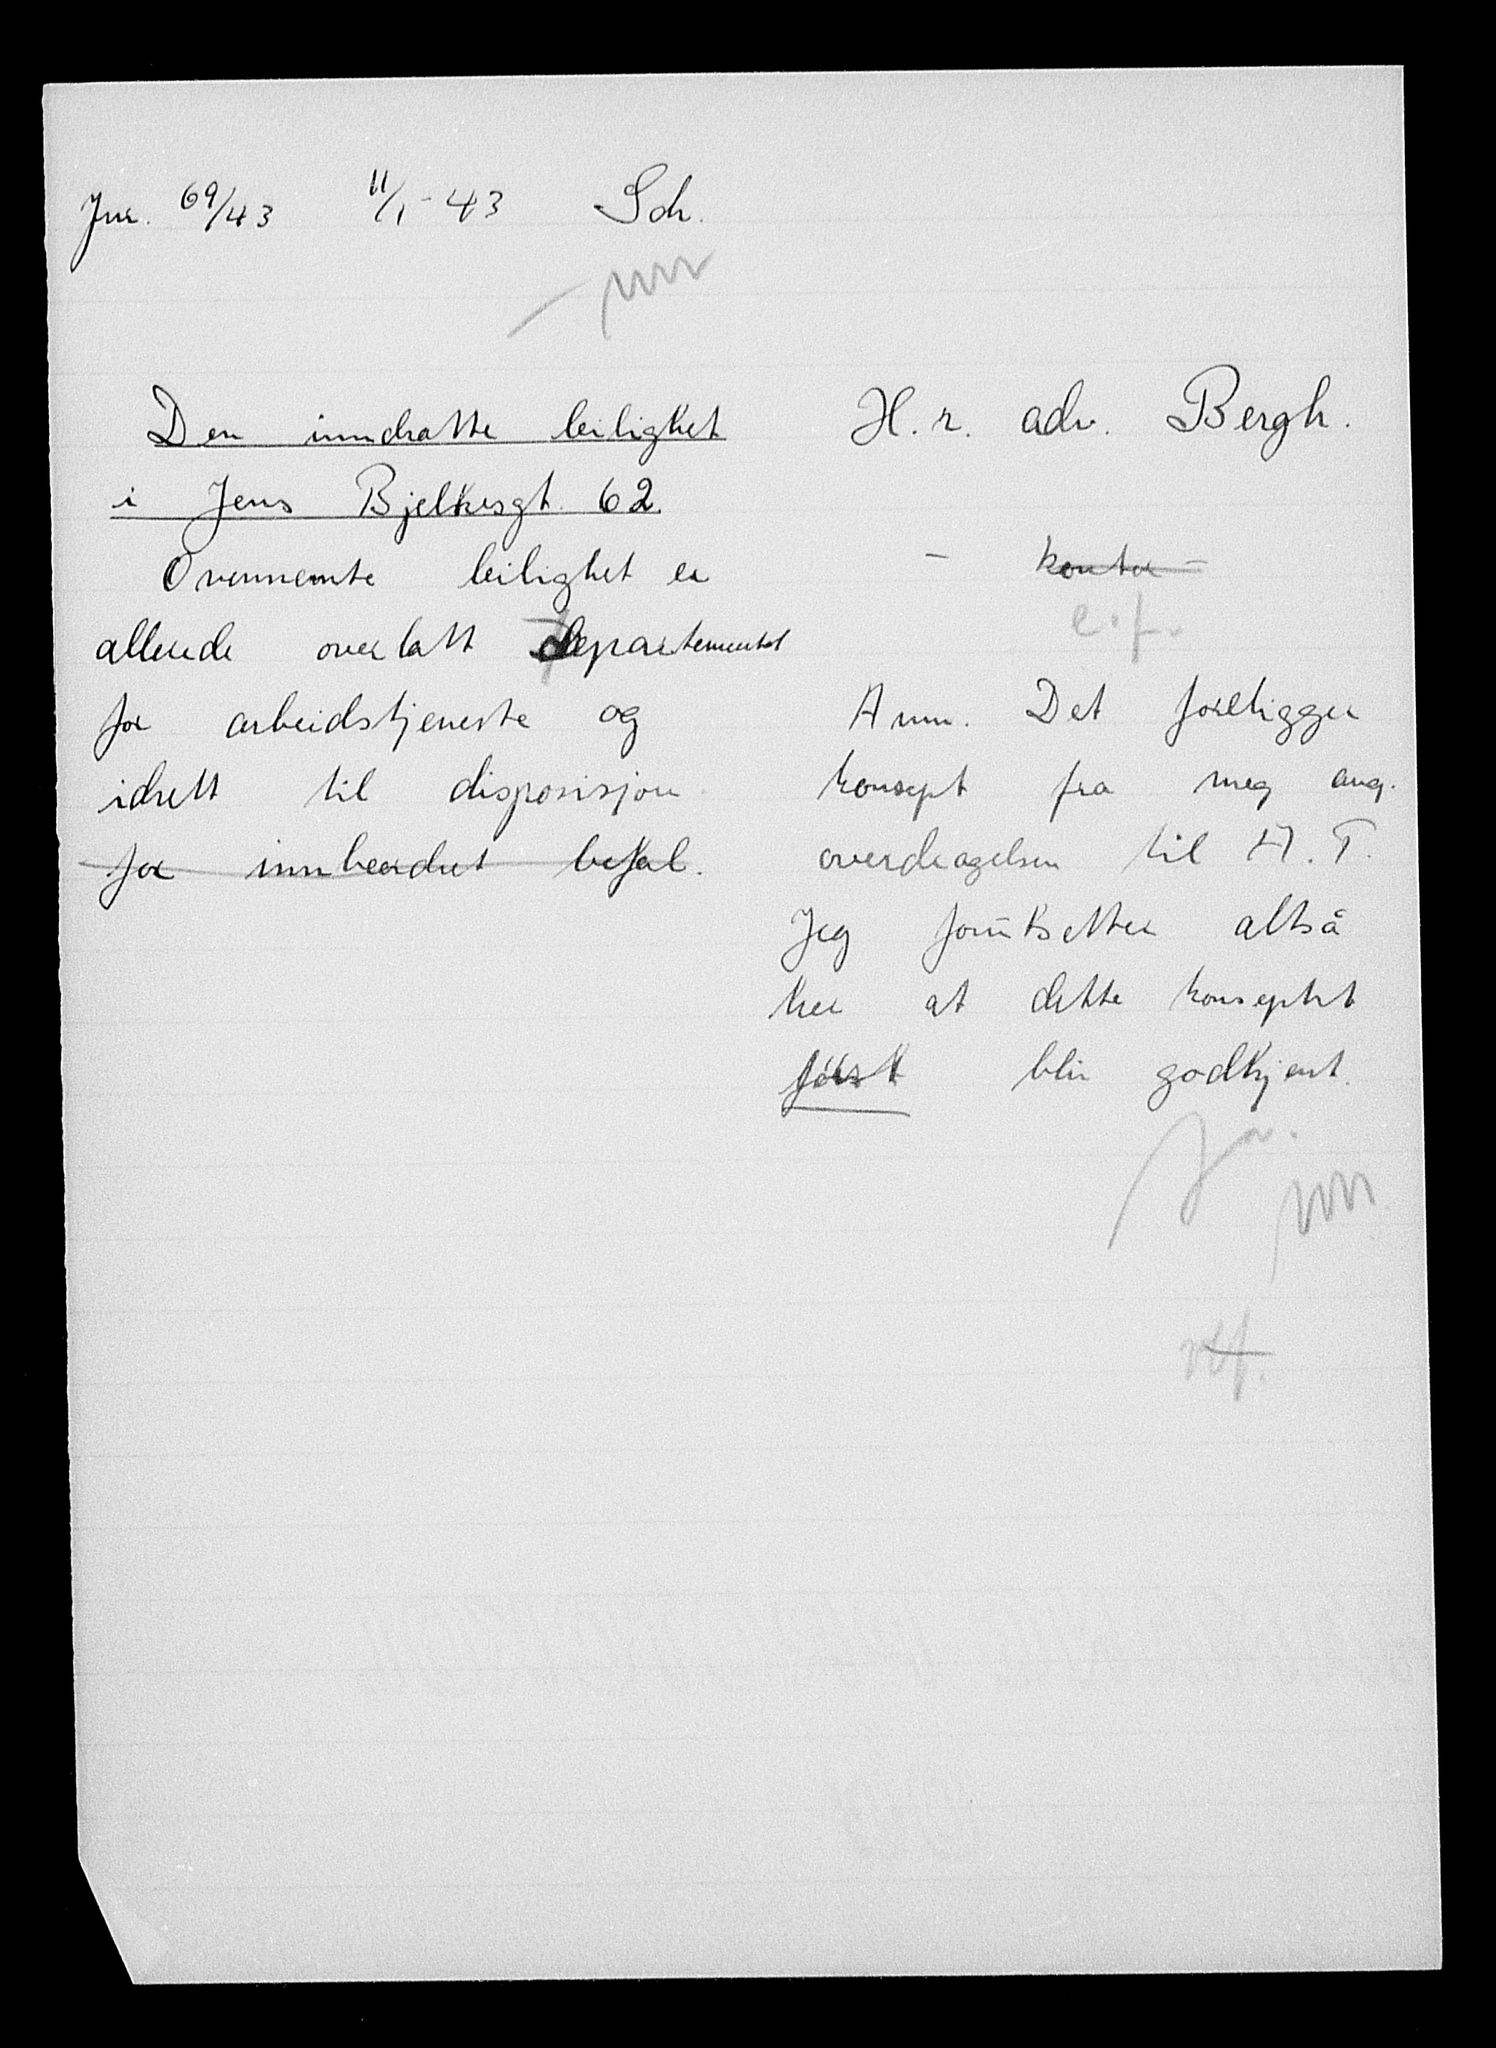 Jnr. 69/43 11/1-43 Sch.
Den inndratte leilighet
i Jens Bjelkesgt. 62.
Ovennemte leilighet er
allerede overlatt departementet
for arbeidstjeneste og
idrett til disposisjon
for innbeordret befal.
H.r. adv. Bergh.
- kontor -
e.f.
Anm. Det foreligger
konsept fra meg ang.
overdragelsen til A.T.
Jeg forutsetter altså
her at dette konseptet
først blir godkjent.
Ja.